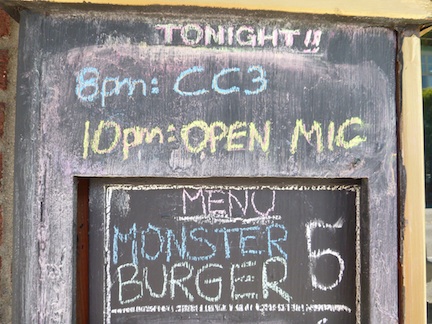 TONIGHT!!
8pm: CC3
10pm: OPEN MIC
MENU
MONSTER
BURGER 5